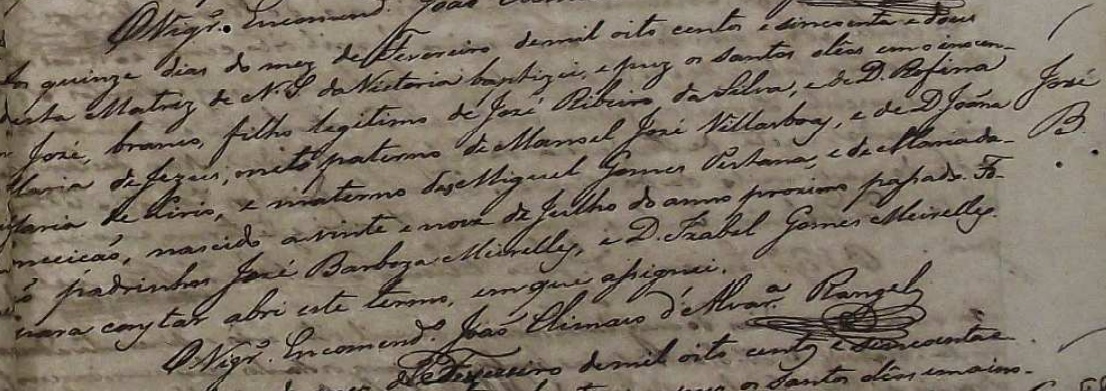 O Vigr.º Encomend. João
Aos quinze dias do mez de Fevereiro de mil oito centos e sincoenta e dous
nesta Matriz de N. S. da Victoria baptizei, e puz os santos oleos em o inocen-
José, branco, filho legitimo de José Ribeiro da Silva, e de D. Rofina
Maria de Jezus, neto paterno de Manoel José Villasboas, e de D. Joána
Maria de Liris, e materno de Miguel Gomes Pestana, e de Maria da
Conceicaõ, nascido a vinte e nove de Julho do anno proximo passado. Fo-
raõ padrinhos José Barboza Meirelles, e D. Izabel Gomes Meirelles.
E para constar abri este termo, em que assignei.
O Vigr.º Encomend.º João Climaco d'Alvar.ª Rangel
de Fevereiro de mil oito centos e sincoenta e
os santos oleos em o ino-
José
B.